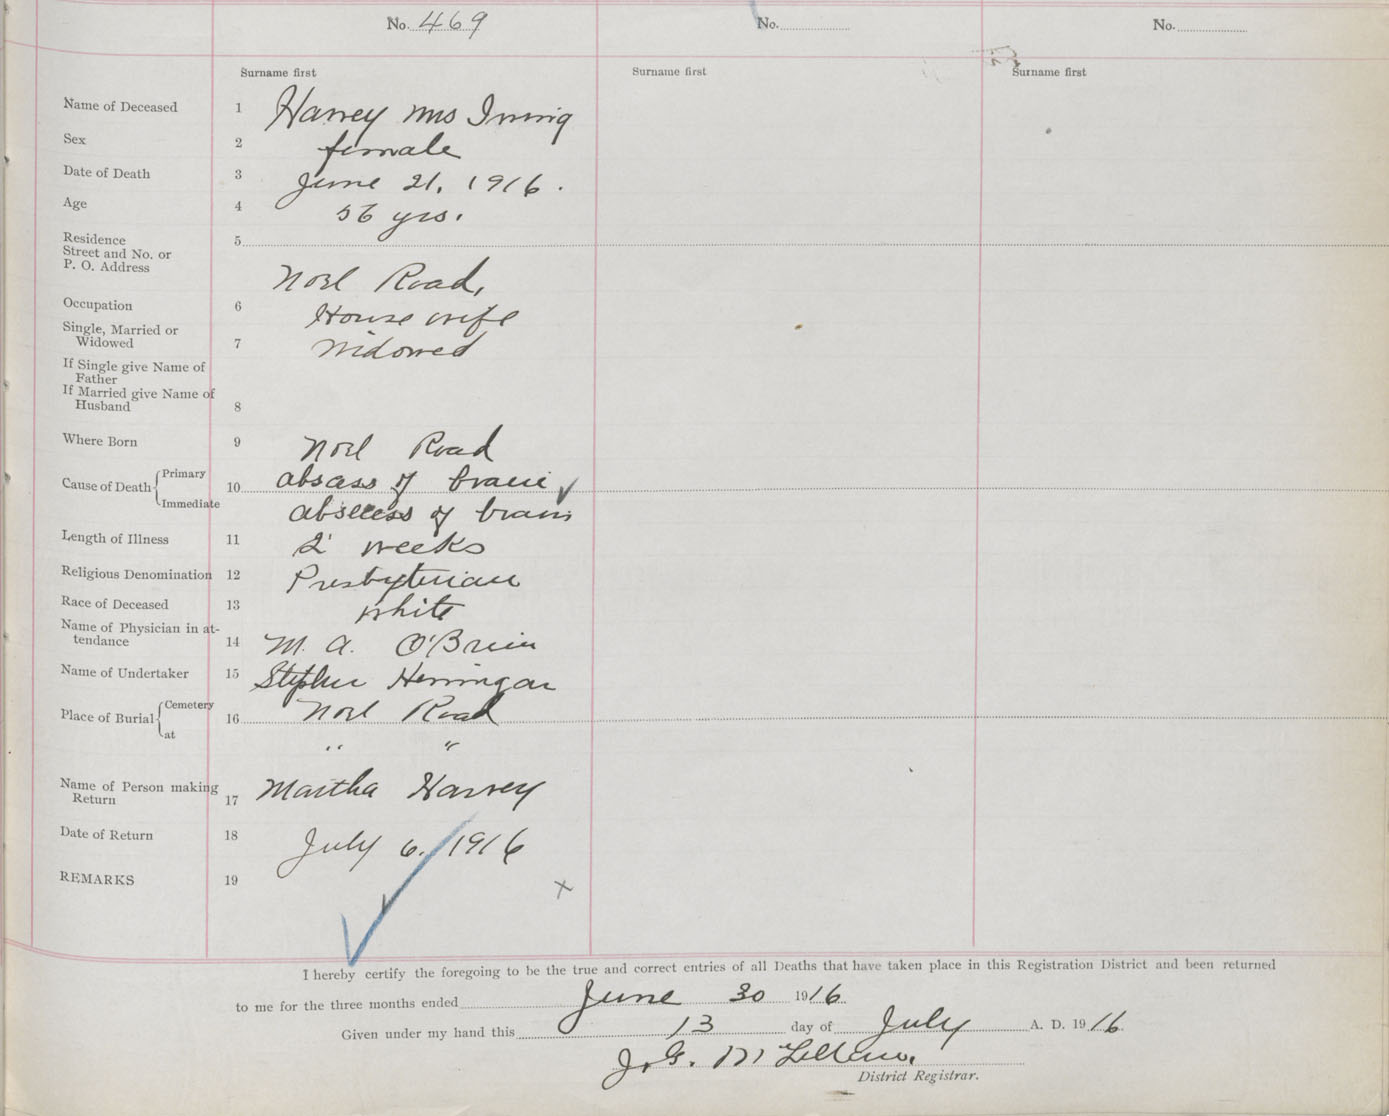 No. 469 No. No.
Surname first Surname first Surname first
Name of Deceased 1 Harvey Mrs Irving
Sex 2 female
Date of Death 3 June 21, 1916.
Age 4 56 yrs.
Residence 5
Street and No. or
P. O. Address Noel Road,
Occupation 6 House wife
Single, Married or
Widowed 7 Widowed
If Single give Name of
Father
If Married give Name of
Husband 8
Where Born 9 Noel Road
Cause of Death Primary 10 absass of brain
Immediate abscess of brain
Length of Illness 11 2 weeks
Religious Denomination 12 Presbyterian
Race of Deceased 13 white
Name of Physician in at-
tendance 14 M. A. O'Brien
Name of Undertaker 15 Stephen Hennigar
Place of Burial Cemetery 16 Noel Road
at " "
Name of Person making
Return 17 Martha Harvey
Date of Return 18 July 6, 1916
REMARKS 19
I hereby certify the foregoing to be the true and correct entries of all Deaths that have taken place in this Registration District and been returned
to me for the three months ended June 30 1916
Given under my hand this 13 day of July A. D. 1916
J. G. McLellan.
District Registrar.